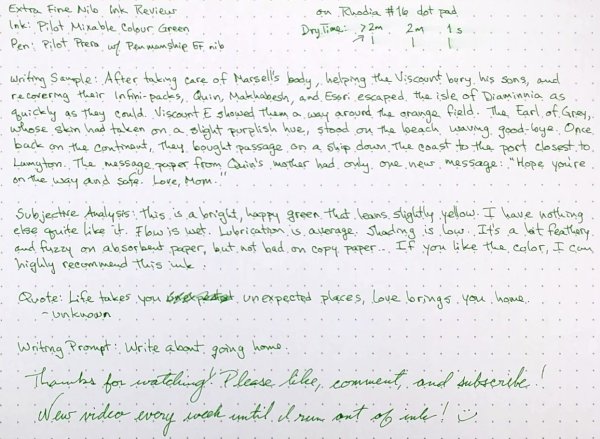 Extra Fine Nib Ink Review
on Rhodia #16 dot pad
Ink: Pilot Mixable Colour Green
Dry Time: >2m 2m 1s
Pen: Pilot Prera w/ Penmanship EF nib
Writing Sample: After taking care of Marsell's body, helping the Viscount bury his sons, and
recovering their Infini-packs, Quin, Makhabesh, and Esori escaped the isle of Diaminnia as
quickly as they could. Viscount E showed them a way around the orange field. The Earl of Grey,
whose skin had taken on a slight purplish hue, stood on the beach waving good-bye. Once
back on the continent, they bought passage on a ship down the coast to the port closest to
Lumyton. The message paper from Quin's mother had only one new message: "Hope you're
on the way and safe. Love, Mom."
Subjective Analysis: This is a bright, happy green that leans slightly yellow. I have nothing
else quite like it. Flow is wet. Lubrication is average. Shading is low. It's a bit feathery
and fuzzy on absorbent paper, but not bad on copy paper... If you like the color, I can
highly recommend this ink.
Quote: Life takes you unexpected places, love brings you home.
- unknown
Writing Prompt: Write about going home.
Thanks for watching! Please like, comment, and subscribe!
New video every week until I run out of ink!